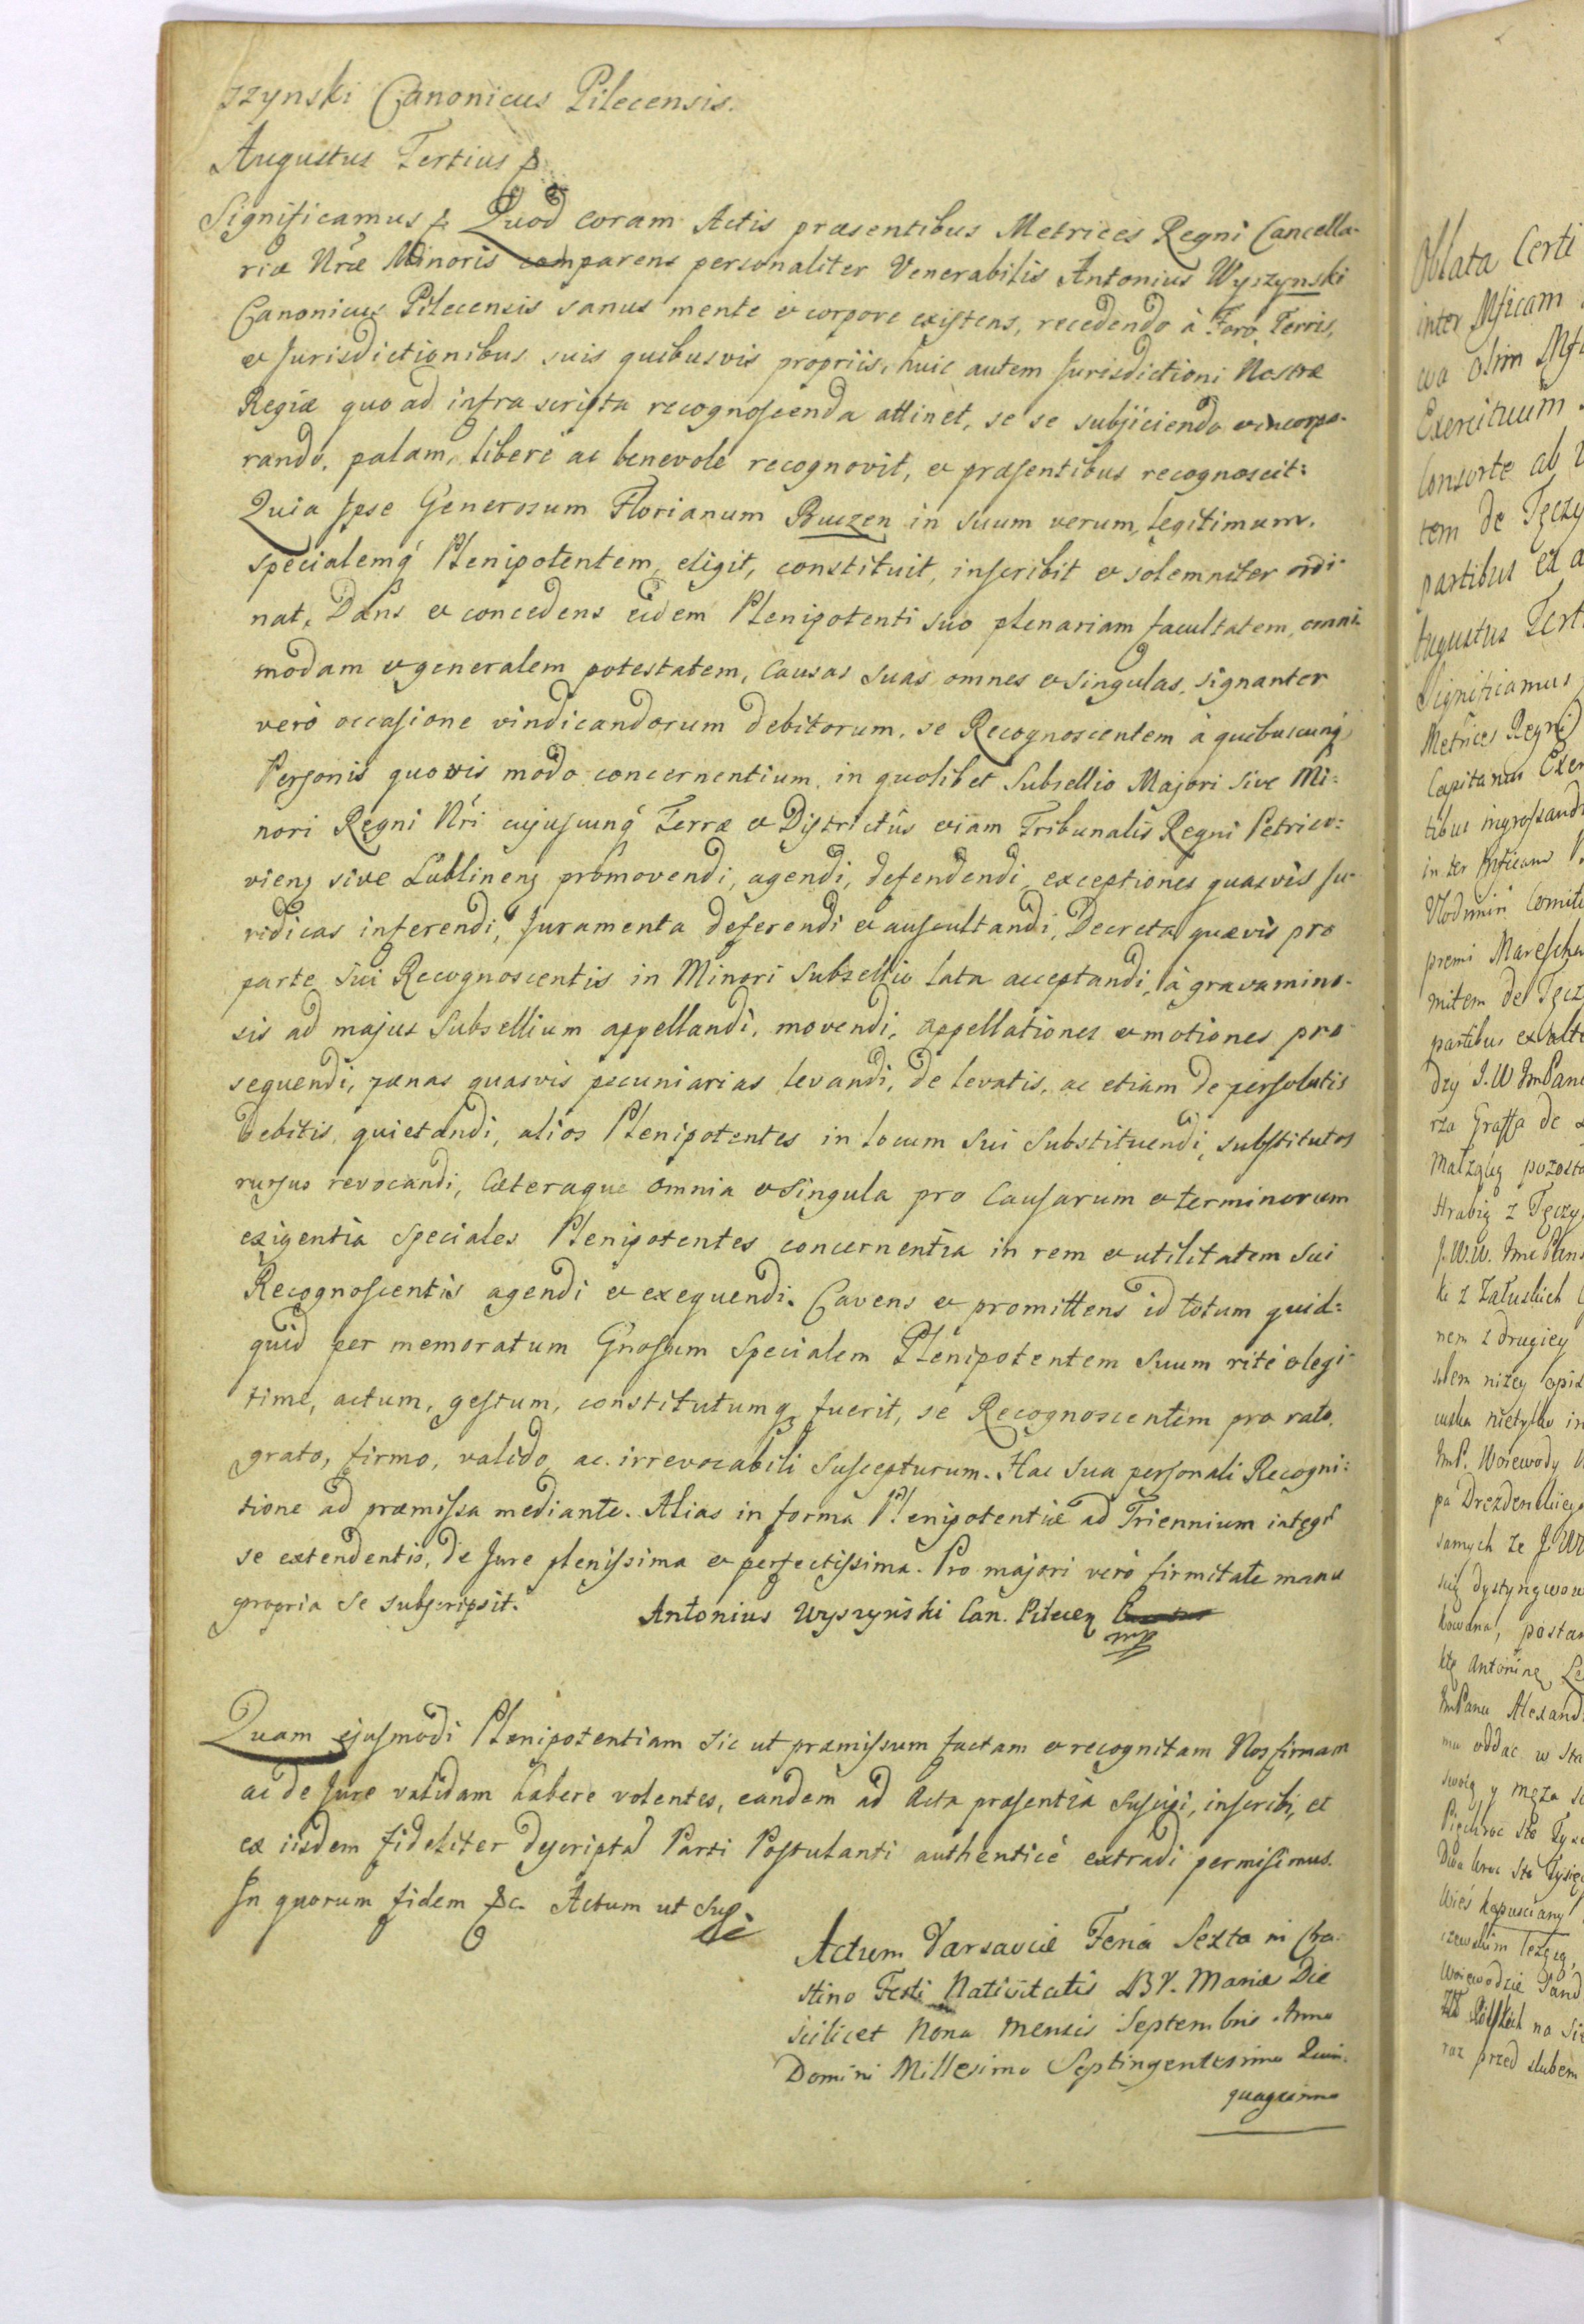 szynski Canonicus Pilecensis.
Augustus Tertius &
Significamus & Quod coram Actis præsentibus Metrices Regni Cancella-
riæ Nræ Minoris comparens personaliter Venerabilis Antonius Wyszynski
Canonicus Pilecensis sanus mente et corpore existens, recedendo à Foro, Terris,
et Jurisdictionibus suis quibusvis propriis, huic autem Jurisdictioni Nostræ
Regiæ quo ad infra scripta recognoscenda attinet, se se subjiciendo et incorpo-
rando, palam, liberè ac benevole recognovit, et præsentibus recognoscit:
Quia Ipse Generosum Florianum Buczen in suum verum, legitimum,
specialemq́ Plenipotentem, eligit, constituit, inscribit et solemniter ordi-
nat, Dans et concedens eidem Plenipotenti suo plenariam facultatem, omni-
modam et generalem potestatem, Causas suas omnes et singulas, signanter
verò occasione vindicandorum debitorum, se Recognoscentem à quibuscunq́
Personis quovis modo concernentium, in quolibet Subsellio Majori sive Mi=
nori Regni Nri cujuscunq́ Terræ et Districtûs etiam Tribunalis Regni Petrico=
viens sive Lublinens promovendi, agendi, defendendi, exceptiones quasvis Ju-
ridicas inferendi, Juramenta deferendi et auscultandi, Decreta quævis pro
parte sui Recognoscentis in Minori Subsellio lata acceptandi, à gravamino-
sis ad majus Subsellium appellandi, movendi, appellationes et motiones pro-
sequendi, pænas quasvis pecuniarias levandi, de levatis, ac etiam de persolutis
debitis, quietandi, alios Plenipotentes in locum sui Substituendi, substitutos
rursus revocandi, Cæteraque omnia et singula pro Causarum et terminorum
exigentia Speciales Plenipotentes concernentia in rem et utilitatem sui
Recognoscentis agendi et exequendi. Cavens et promittens id totum quid=
quid per memoratum Gnosum Specialem Plenipotentem Suum ritè et legi-
time, actum, gestum, constitutumq fuerit, se Recognoscentem pro rato,
grato, firmo, valido, ac irrevocabili Suscepturum. Hac sua personali Recogni=
tione ad præmissa mediante. Alias in forma Plenipotentiæ ad Triennium integr̃
se extendentis, de Jure plenissima et perfectissima. Pro majori verò firmitate manu
propria se subscripsit. Antonius Wyszyński Can. Pilecen
mp
Quam ejusmodi Plenipotentiam sic ut præmissum factam et recognitam Nos firmam
ac de Jure validam habere volentes, eandem ad Acta præsentia suscipi, inscribi, et
ex iisdem fideliter descripta Parti Postulanti authenticè extradi permisimus.
In quorum fidem &c. Actum ut sup
Actum Varsaviæ Feria Sexta in Cra-
stino Festi Nativitatis BV. Mariæ Die
scilicet Nona Mensis Septembris Anno
Domini Millesimo Septingentesimo Quin-
quagesimo
Oblata Certi
inter Mficam
wa olim Mfi
Exercituum
Consorte ab
tem de Tęczy
partibus ex a
Augustus Terti
Significamus
Metrices Regni
Capitanus Exer
tibus ingrossandi
inter Mficam
Vlodimiri Comiti
premi Maresch
mitem de Tęcz
partibus ex alte
dzy J.W ImPane
rza Graffa de
Małżąką pozosta
Hrabią z Tęczy
J.W.W. Ime Pan
ki z Załuskich
nem z drugiey
słem niżey opis
cuska nietylko in
ImP. Woiewody
pa Drezdenskiego
samych ze J.W
się dystyngwow
kowana, postan
tkę Antoninę
ImPanu Alexand
mu oddac w sta
swoią y męża
Pięckroc sto Tysi
Dwa kroc sto Tysię
Wieś Kapusciany
czewskim leżącą,
Woiewodzie Sand
na
raz przed slubem